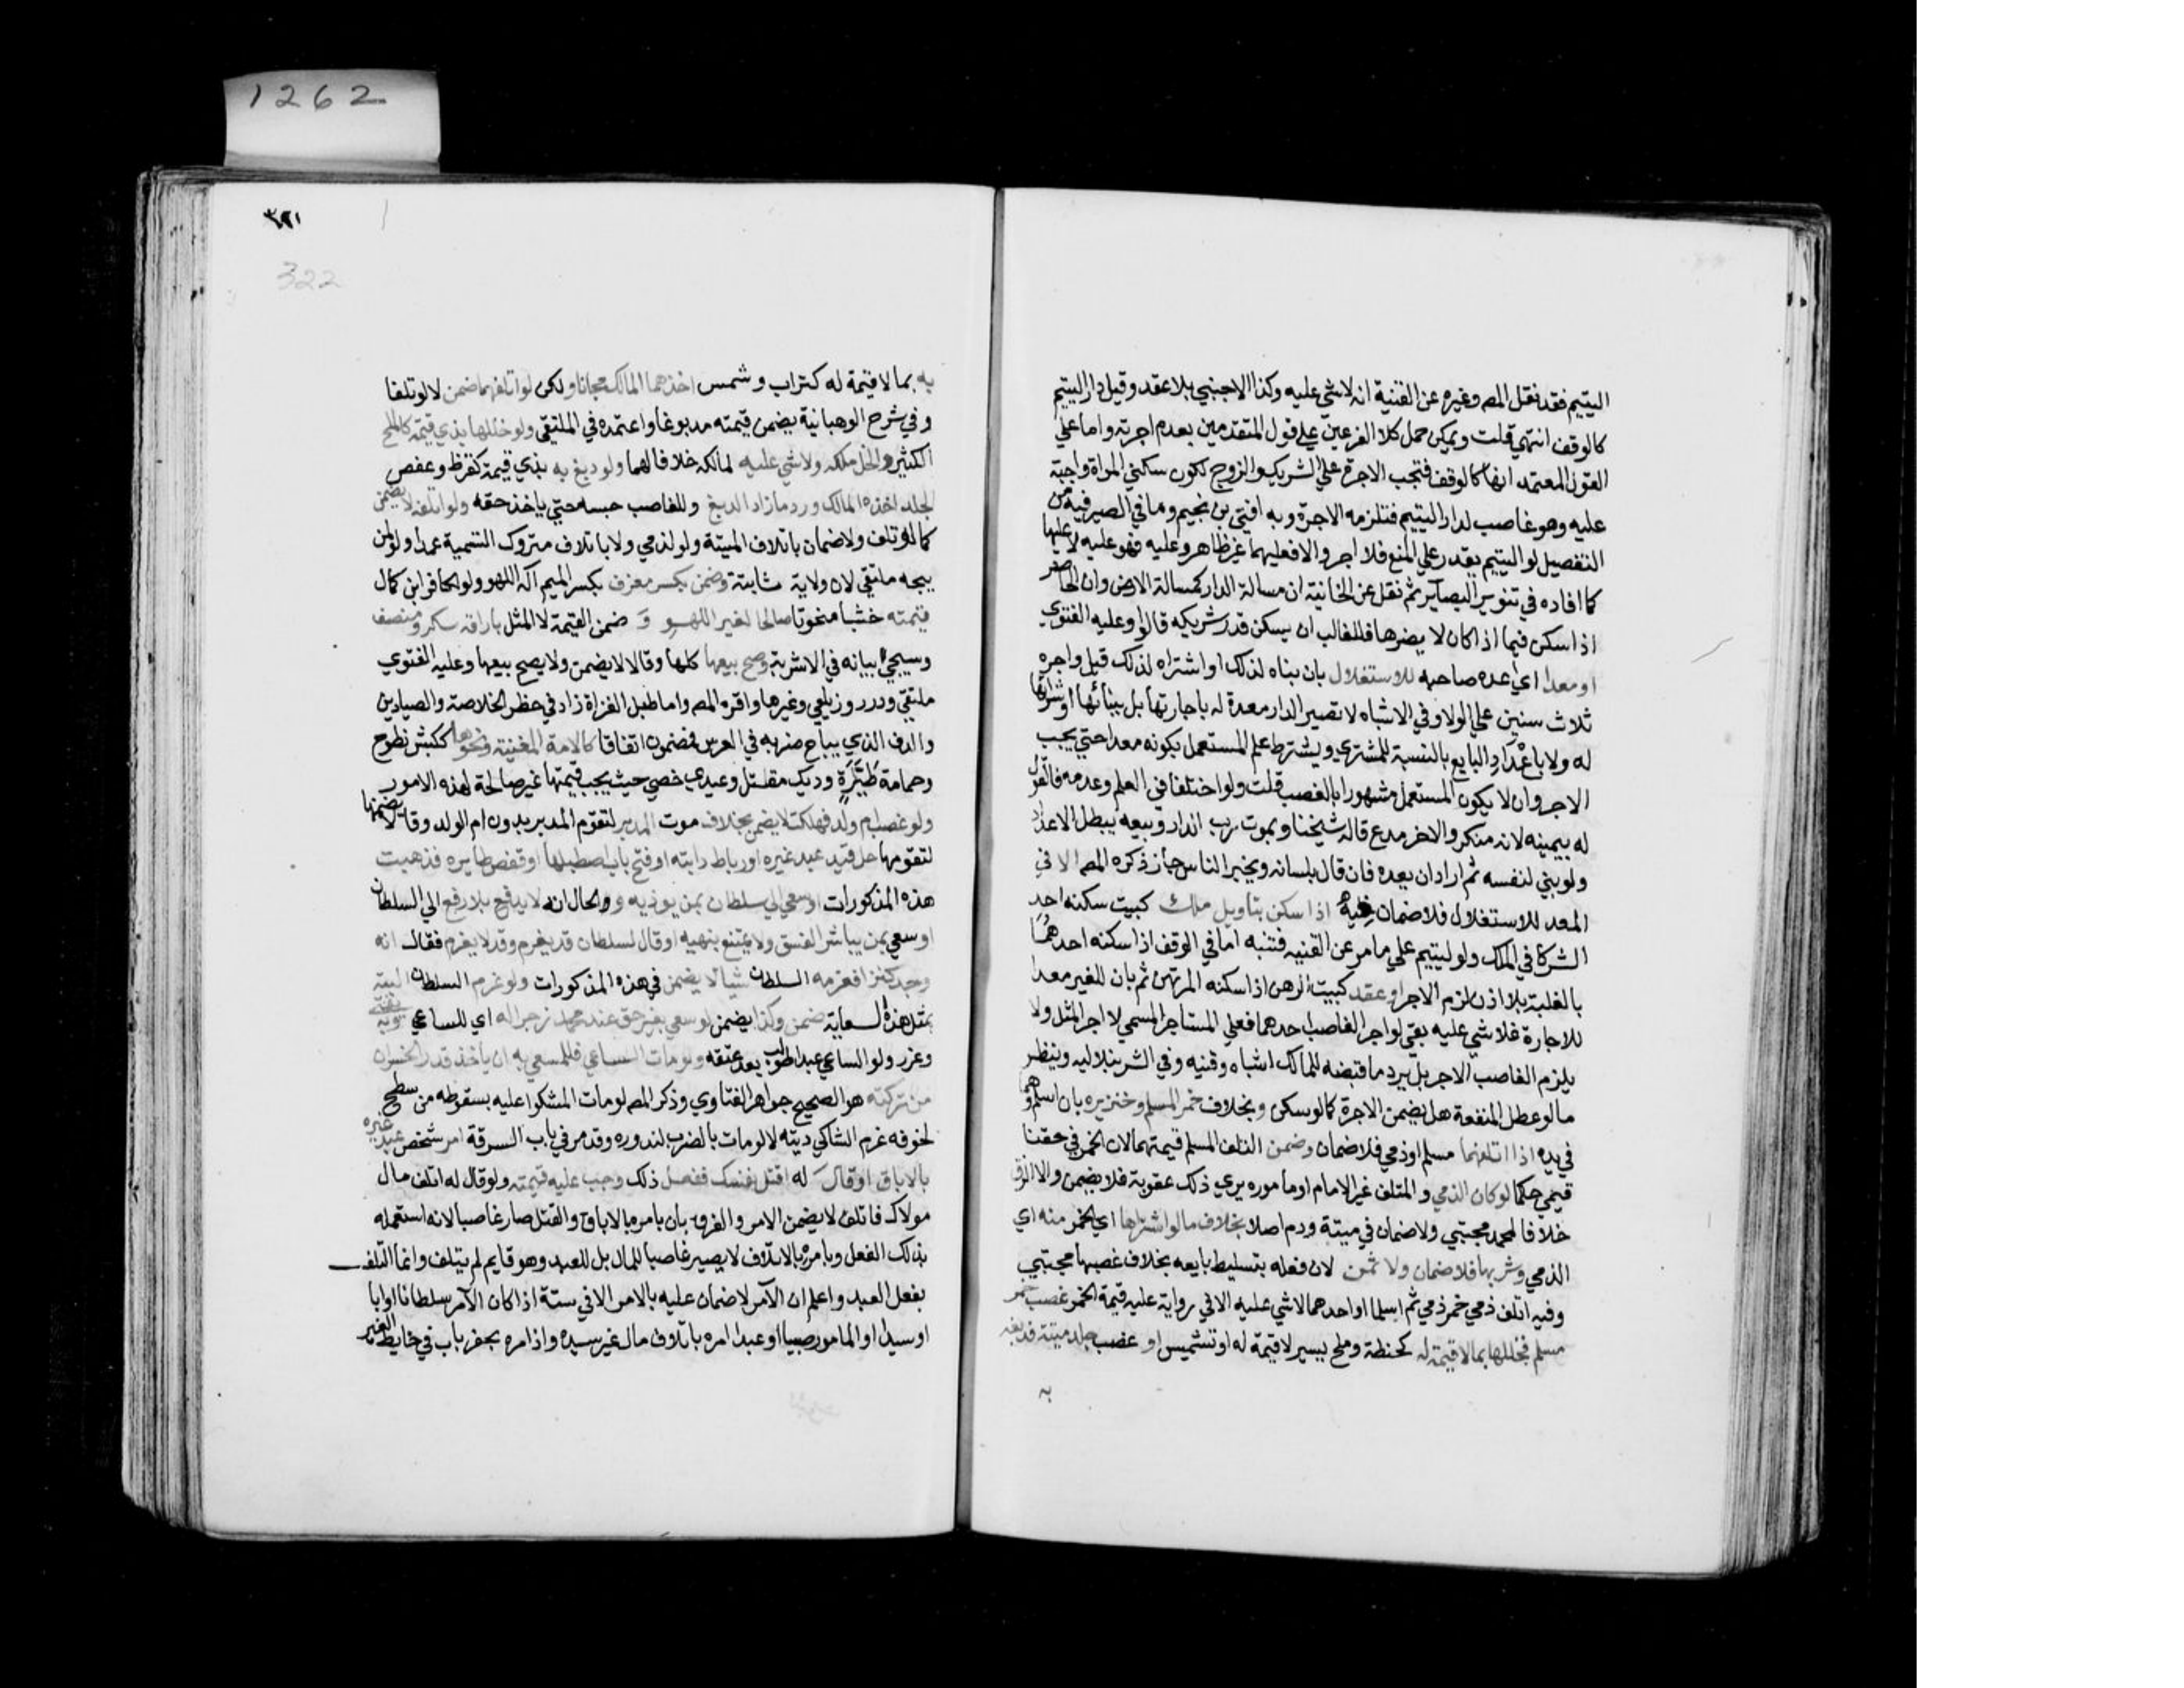 1262
اليتيم فقد نقل المصـ وغيره عن القنية انه لا شي عليه وكذا الاجنبي بلا عقد وقيل دار اليتيم
كالوقف انتهي قلت ويمكن حمل كلا الفرعين علي قول المتقدمين بعدم اجرته واما علي
القول المعتمد انها كالوقف فتجب الاجرة علي الشريك والزوج لكون سكني المراة واجبة
عليه وهو غاصب لدار اليتيم فتلزمه الاجرة وبه افتي بن نجيم وما في الصيرفية من
التفصيل لو اليتيم يقدر علي المنع فلا اجر والا فعليهما غير ظاهر وعليه فهو عليه لا عليها
كما افاده في تنوير البصاير ثم نقل عن الخانية ان مسالة الدار كمسالة الارض وان الحاضر
اذا سكن فيما اذا كان لا يضرها فللغالب ان يسكن قدر شريكه قالوا وعليه الفتوي
او معدا اي اعده صاحبه للاستغلال بان بناه لذلك او اشتراه لذلك قيل واجره
ثلاث سنين علي الولا وفي الاشباه لا تصير الدار معدة له باجارتها بل ببنائها او شرائها
له ولا باعْدادِ البايع بالنسبة للمشتري ويشترط علم المستعمل بكونه معدا حتي يجب
الاجر وان لا يكون المستعمل مشهورا بالغصب قلت ولو اختلفا في العلم وعدمه فالقول
له بيمينه لانه منكر والاخر مدع قاله شيخنا وبموت رب الدار وبيعه يبطل الاعداد
ولو بني لنفسه ثم اراد ان يعده فان قال بلسانه ويخبر الناس جاز ذكره المصـ الا في
المعد للاستغلال فلا ضمان فيه اذا سكن بتاويل ملك كبيت سكنه احد
الشركا في الملك ولو ليتيم علي ما مر عن القنيه فتنبه اما في الوقف اذا سكنه احدهما
بالغلبة بلا اذن لزم الاجر او عقد كبيت الرهن اذا سكنه المرتهن ثم بان للغير معدا
للاجارة فلا شي عليه بقي لو اجر الغاصب احدهما فعلي المستاجر المسمي لا اجر المثل ولا
يلزم الغاصب الاجر بل يرد ما قبضه للمالك اشباه وقنيه وفي الشرنبلاليه وينظر
ما لو عطل المنفعة هل يضمن الاجرة كما لو سكن وبخلاف خمر المسلم وخنزيره بان اسلم وهما
في يده اذا اتلفهما مسلم او ذمي فلا ضمان وضمن المتلف المسلم قيمتهما لان الخمر في حقنا
قيمي حكما لو كان الذمي والمتلف غير الامام او مأموره يري ذلك عقوبة فلا يضمن ولا الزق
خلافا لمحمد مجتبي ولا ضمان في ميتة ودم اصلا بخلاف ما لو اشتراها اي الخمر منه اي
الذمي وشربها فلا ضمان ولا ثمن لان فعله بتسليط بايعه بخلاف غصبها مجتبي
وفيه اتلف ذمي خمر ذمي ثم اسلما او احدهما لا شي عليه الا في رواية عليه قيمة الخمر غصب خمر
مسلم فخللها بما لا قيمة له كحنطة وملح يسير لا قيمة له او تشميس او غصب جلد ميتة فدبغه
به
٣٢١
322
به بما لا قيمة له كتراب وشمس اخذهما المالك مجانا ولكن لو اتلفهما ضمن لا لو تلفا
وفي شرح الوهبانية يضمن قيمته مدبوغا واعتمده في الملتقي ولو خللها بذي قيمة كالملح
الكثير والخل ملكه ولا شي عليه لمالكه خلافا لهما ولو دبغ به بذي قيمة كقرظ وعفص
الجلد اخذه المالك ورد ما زاد الدبغ وللغاصب حبسه حتي ياخذ حقه ولو اتلفه لا يضمن
كما لو تلف ولا ضمان باتلاف الميتة ولو لذمي ولا باتلاف متروك التسمية عمدا ولو لمن
يبيحه ملتقي لان ولاية ثابتة وضمن بكسر معزف بكسر الميم آلة اللهو ولو لكافر ابن كمال
قيمته خشبا منحوتا صالحا لغير اللهو وَ ضمن القيمة لا المثل باراقة سكر ومنصف
وسيجيء بيانه في الاشربة وصح بيعها كلها وقالا لا يضمن ولا يصح بيعها وعليه الفتوي
ملتقي ودرر وزيلعي وغيرها واقره المصـ واما طبل الغزاة زاد في حظر الخلاصة والصيادين
والدف الذي يباح ضربه في العرس فمضمون اتفاقا كالامة المغنية ونحوها ككبش نطوح
وحمامة طيَّارَةٍ وديك مقاتل وعبد خصي حيث يجب قيمتها غير صالحة لهذه الامور
ولو غصب ام ولد فهلكت لا يضمن بخلاف موت المدبر لتقوم المدبر بدون ام الولد وقالا يضمنها
لتقومها حل قيد عبد غيره او رباط دابته او فتح باب اصطبلها او قفص طايره فذهبت
هذه المذكورات او سعي الي سلطان بمن يوذيه و والحال انه لا يدفع بلا رفع الي السلطان
او سعي بمن يباشر الفسق ولا يمتنع بنهيه او قال لسلطان قد يغرم وقد لا يغرم فقال انه
وجد كنزا فغرمه السلطان شيأ لا يضمن في هذه المذكورات ولو غرم السلطان البتة
بمثل هذه السعاية ضمن وكذا يضمن لو سعي بغير حق عند محمد زجرا له اي للساعي وبه يفتي
وعزر ولو الساعي عبدا طولب بعد عتقه ولو مات الساعي فللمسعي به ان يأخذ قدر الخسران
من تركته هو الصحيح جواهر الفتاوي وذكر المصـ لو مات المشكو عليه بسقوطه من سطح
لخوفه غرم الشاكي ديته لا لو مات بالضرب لندوره وقد مر في باب السرقة امر شخص عبد غيره
بالاباق او قال له اقتل نفسك ففعل ذلك وجب عليه قيمته ولو قال له اتلف مال
مولاك فاتلف لا يضمن الامر والفرق بان بامره بالاباق والقتل صار غاصبا لانه استعمله
بذلك الفعل وبامره بالاتلاف لا يصير غاصبا للمال بل للعبد وهو قايم لم يتلف وانما التلف
بفعل العبد واعلم ان الآمر لا ضمان عليه بالامر الا في ستة اذا كان الآمر سلطانا او ابا
او سيدا او المامور صبيا او عبدا امره باتلاف مال غير سيده واذا امره بحفر باب في حايط الغير